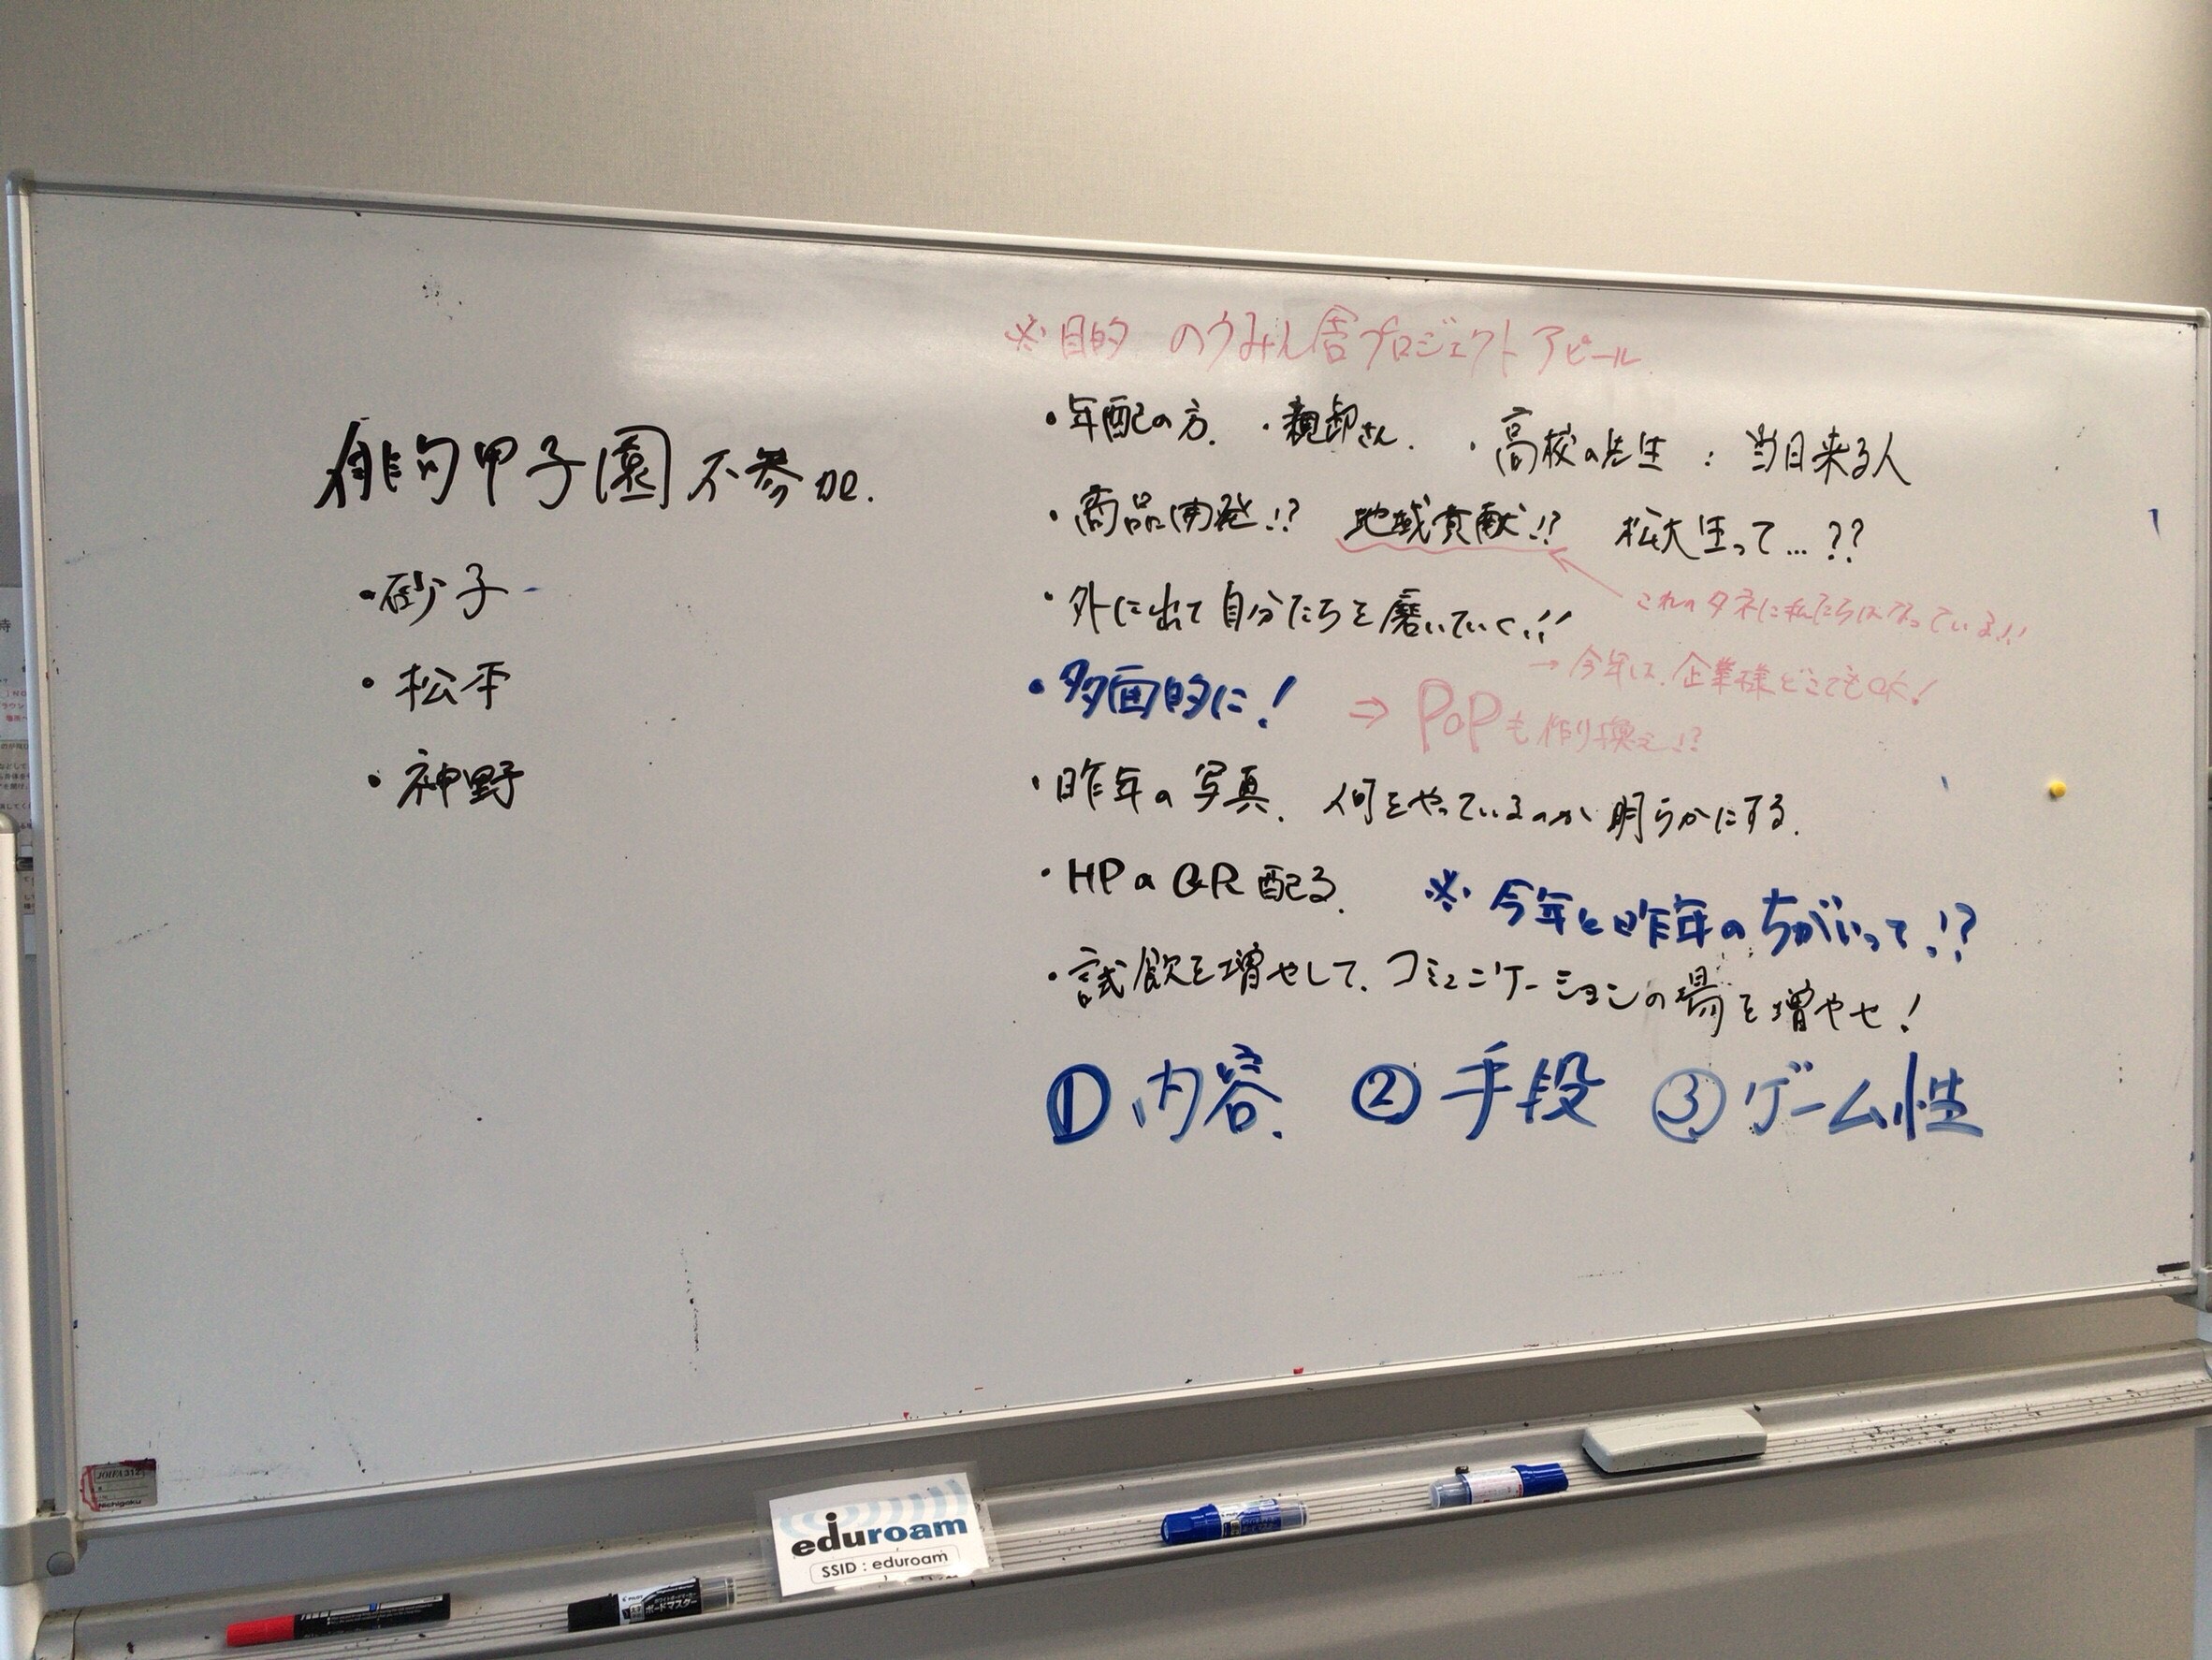 俳句甲子園不参加.
・砂子
・松平
・神野
※目的 のうみん舎プロジェクトアピール
・年配の方. ・親御さん. ・高校の先生 : 当日来る人
・商品開発!? 地域貢献!? 松大生って…??
これのタネに私たちはなっている!!
・外に出て自分たちを磨いていく!!
→今年は、企業様どこでもOK!
・多面的に!
⇒POPも作り換え!?
・昨年の写真、何をやっているのか明らかにする.
・HPのQR配る.
※今年と昨年のちがいって!?
・試飲を増やして、コミュニケーションの場を増やせ!
①内容. ②手段 ③ゲーム性
JOIFA 312
Nichigaku
eduroam
SSID : eduroam
ボードマスター